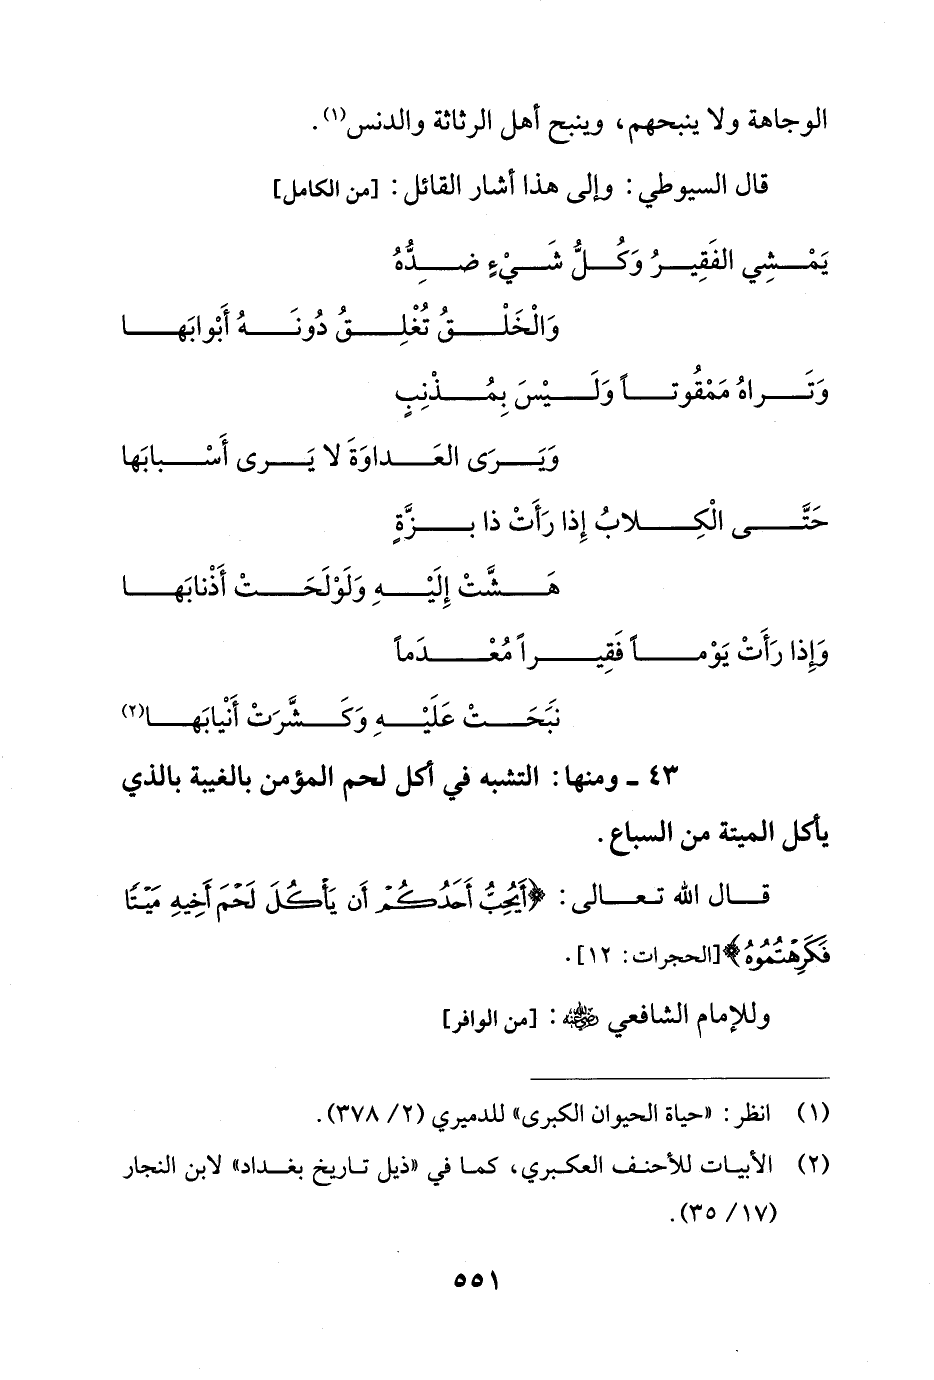 الوجاهة ولا ينبحهم، وينبح أهل الرثاثة والدنس(١).
قال السيوطي: وإلى هذا أشار القائل: [من الكامل]
يَمْشِي الفَقِيرُ وَكُلُّ شَيْءٍ ضِدُّهُ
وَالْخَلْقُ تُغْلِقُ دُونَهُ أَبْوابَها
وَتَراهُ مَمْقُوتاً وَلَيْسَ بِمُذْنِبٍ
وَيَرَى العَداوَةَ لا يَرى أَسْبابَها
حَتَّى الْكِلابُ إِذا رَأَتْ ذا بِزَّةٍ
هَشَّتْ إِلَيْهِ وَلَوْلَحَتْ أَذْنابَها
وَإِذا رَأَتْ يَوْماً فَقِيراً مُعْدَماً
نبَحَتْ عَلَيْهِ وَكَشَّرَتْ أَنْيابَها(٢)
٤٣ ـ ومنها: التشبه في أكل لحم المؤمن بالغيبة بالذي
يأكل الميتة من السباع.
قال الله تعالى: ﴿أَيُحِبُّ أَحَدُكُمْ أَن يَأْكُلَ لَحْمَ أَخِيهِ مَيْتًا
فَكَرِهْتُمُوهُ﴾ [الحجرات: ١٢].
وللإمام الشافعي رضي الله عنه: [من الوافر]
(١) انظر: «حياة الحيوان الكبرى» للدميري (٢/ ٣٧٨).
(٢) الأبيات للأحنف العكبري، كما في «ذيل تاريخ بغداد» لابن النجار
(١٧/ ٣٥).
٥٥١